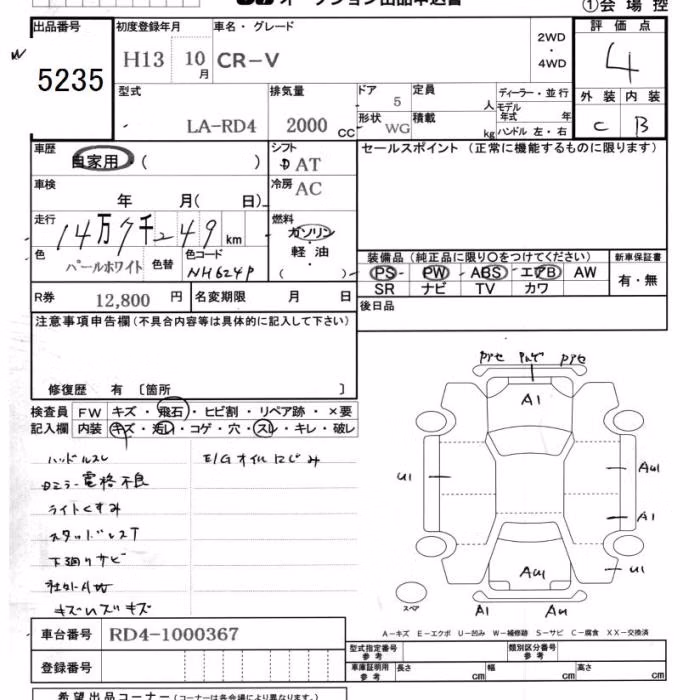 オークション出品申込書 ①会場控
出品番号 初度登録年月 車名・グレード 評価点
5235 H13 10月 CR-V 2WD・4WD 4
型式 排気量 ドア 定員 ディーラー・並行 外装 内装
LA-RD4 2000 CC 5 人 モデル年式 年 C B
形状 積載
WG kg ハンドル 左・右
車歴 シフト セールスポイント (正常に機能するものに限ります)
自家用 ( ) D AT
車検 冷房
年 月( 日) AC
走行 燃料
14万7千249km ガソリン・軽油
( )
色 色替 色コード
パールホワイト NH624P
装備品 (純正品に限り○をつけてください) 新車保証書
PS PW ABS エアB AW 有・無
SR ナビ TV カワ
R券 12,800 円 名変期限 月 日 後日品
注意事項申告欄 (不具合内容等は具体的に記入して下さい)
修復歴 有 〔箇所 〕
検査員記入欄 FW キズ・飛石・ヒビ割・リペア跡・×要
内装 キズ・汚レ・コゲ・穴・スレ・キレ・破レ
ハンドルスレ E/Gオイルにじみ
Dミラー電格不良
ライトくすみ
スタッドレスT
下廻りサビ
キズ
A1
U1 AU1
A1
AU1 U1
スペア A1
A-キズ E-エクボ U-凹み W-補修跡 S-サビ C-腐食 XX-交換済
車台番号 RD4-1000367
登録番号
型式指定番号 参考 類別区分番号 参考
車庫証明用 参考 長さ cm 幅 cm 高さ cm
希望出品コーナー (コーナーは各会場により異なります。)